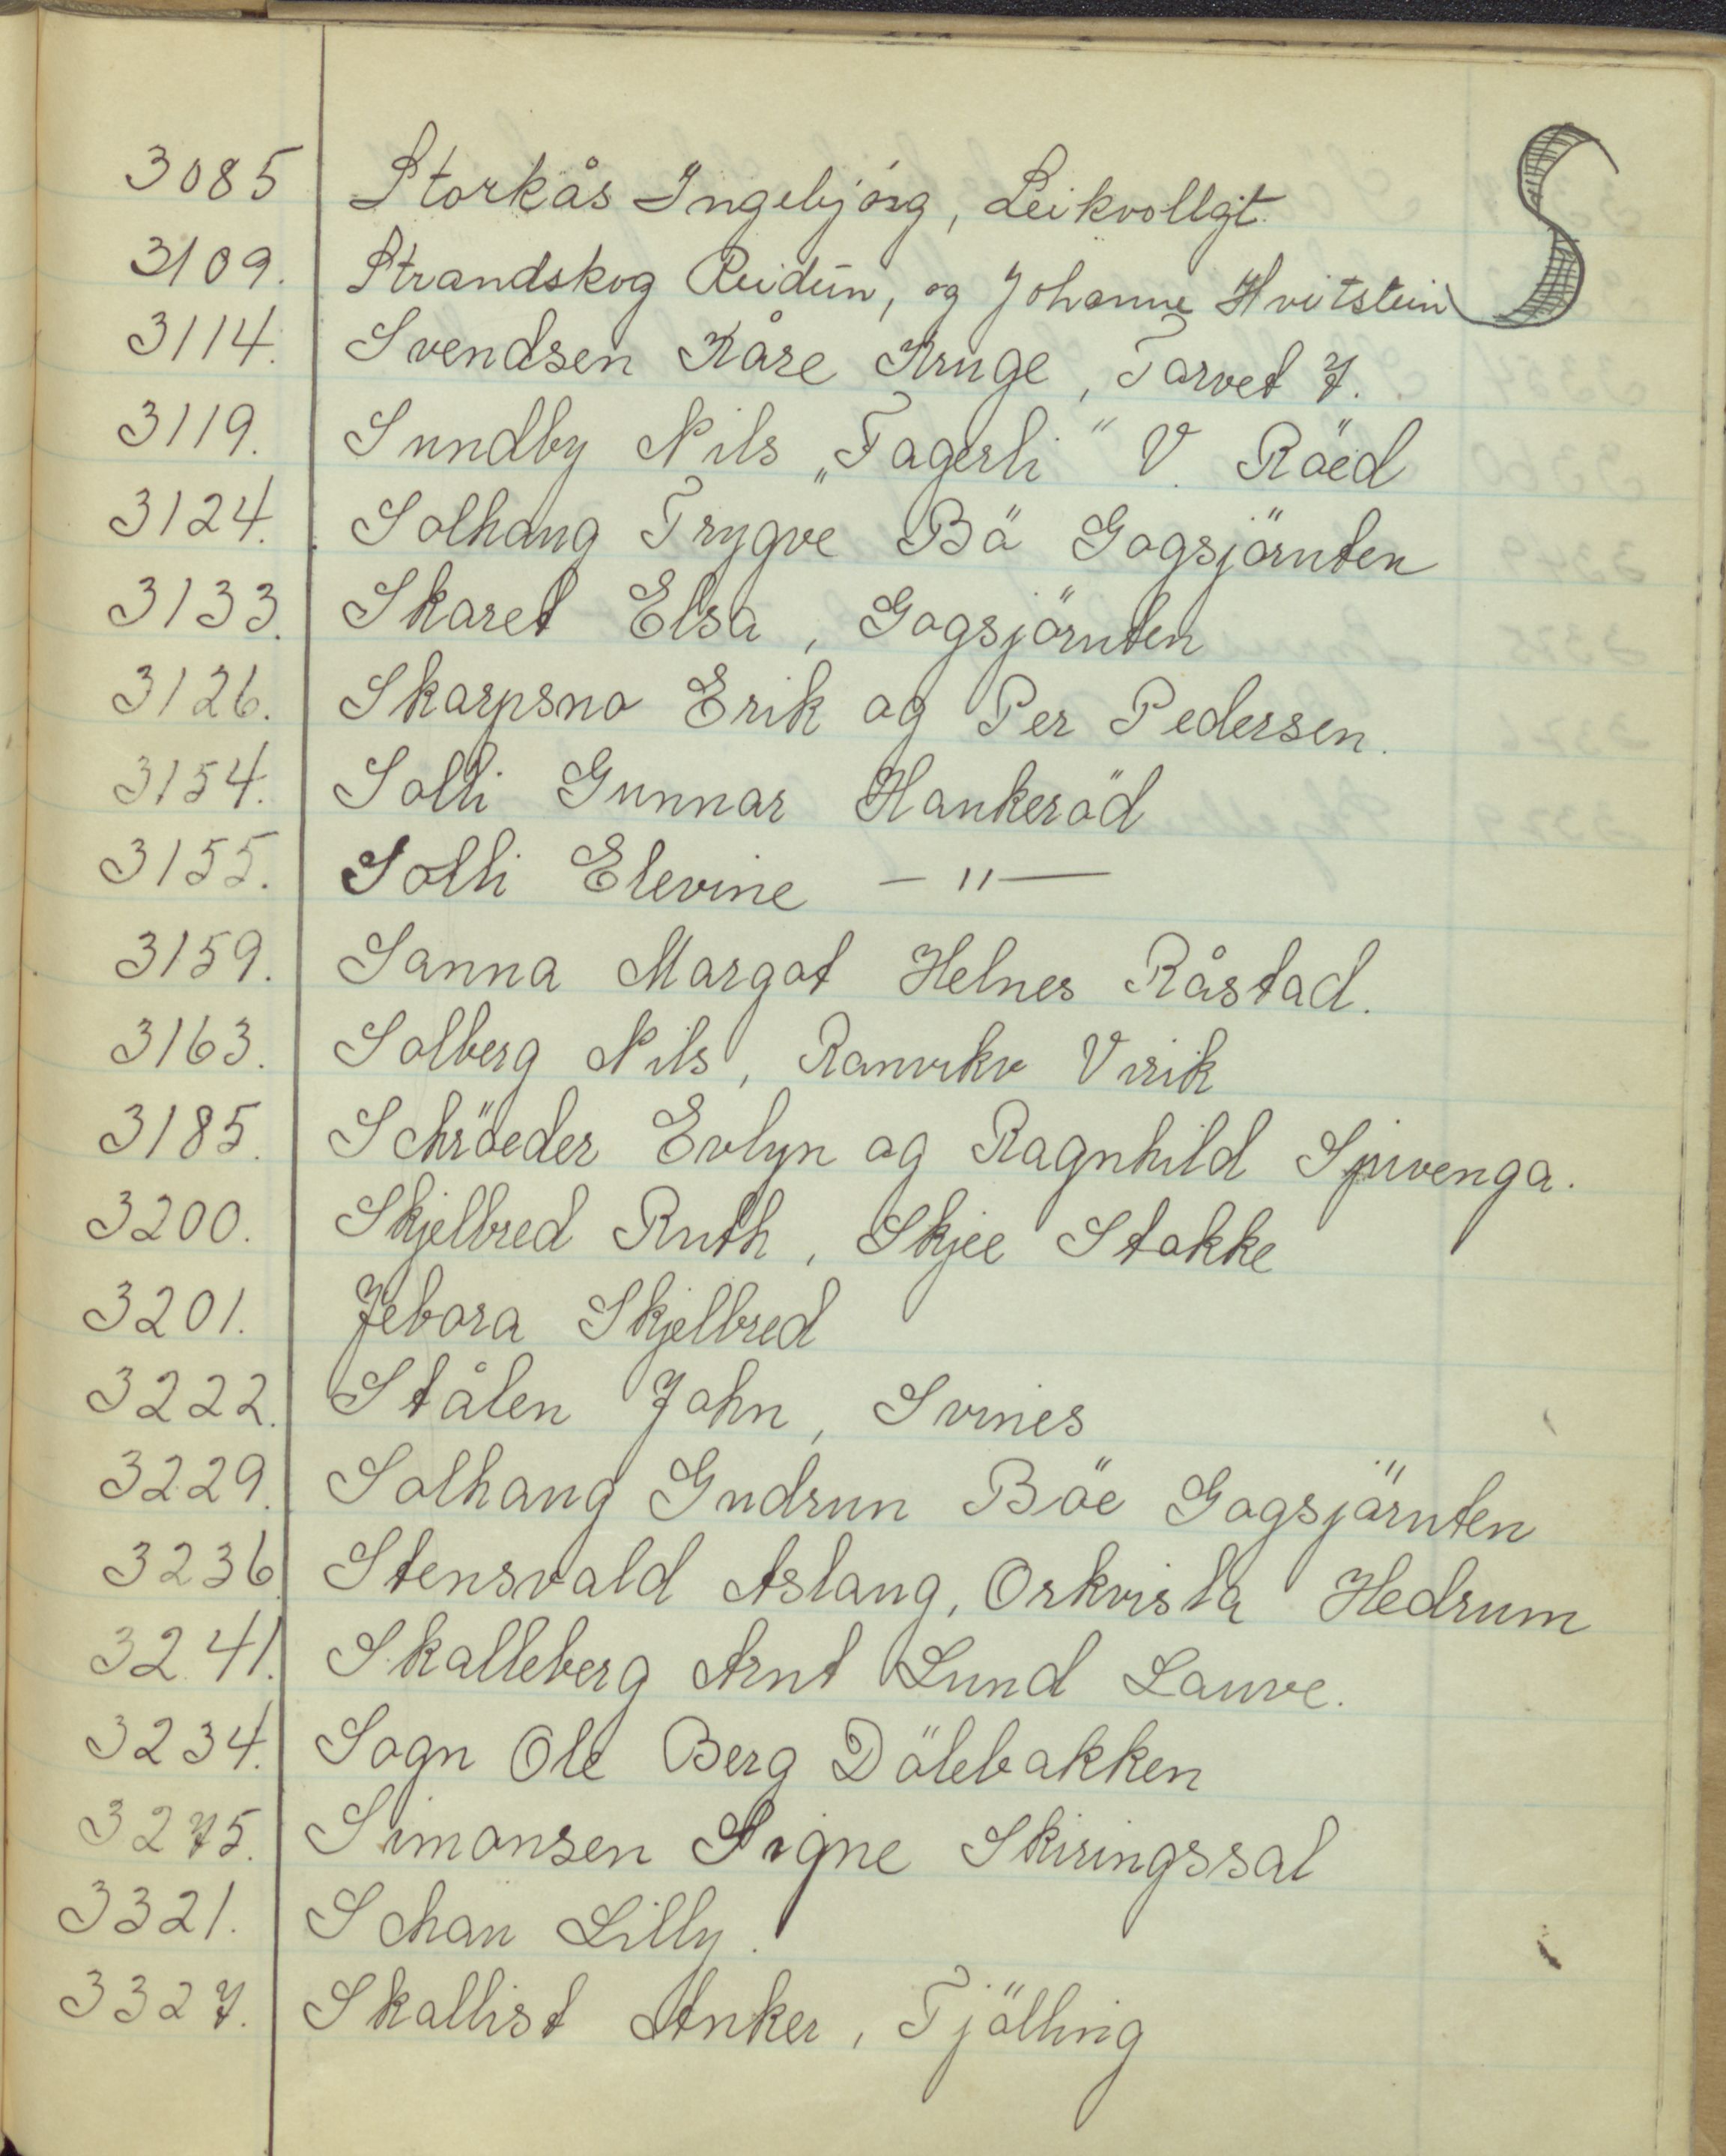 S
3085 Storkås Ingebjörg, Leikvollgt.
3109. Strandskog Reidun, og Johanne Hvitstein
3114. Svendsen Kåre Kruge, Torvet 7.
3119. Sundby Nils „Fagerli" V. Röed
3124. Solhaug Trygve Bö Gogsjöruten
3133. Skaret Elsa, Gogsjöruten
3126. Skarpsno Erik og Per Pedersen.
3154. Solli Gunnar Haukeröd
3155. Solli Elevine — " —
3159. Sanna Margot Helnes Råstad.
3163. Solberg Nils, Ranvikv Virik
3185. Schröeder Evlyn og Ragnhild Spirvenga.
3200. Skjelbred Ruth, Skjee Stokke
3201. Jebora Skjelbred
3222. Stålen John, Svines
3229. Solhaug Gudrun Böe Gogsjöruten
3236. Stensvold Aslaug, Orkvista Hedrum
3241. Skalleberg Arnt Lund Lauve.
3234. Sogn Ole Berg Dölebakken
3275. Simonsen Signe Skiringssal
3321. Schau Lilly.
3327. Skallist Anker, Tjölling